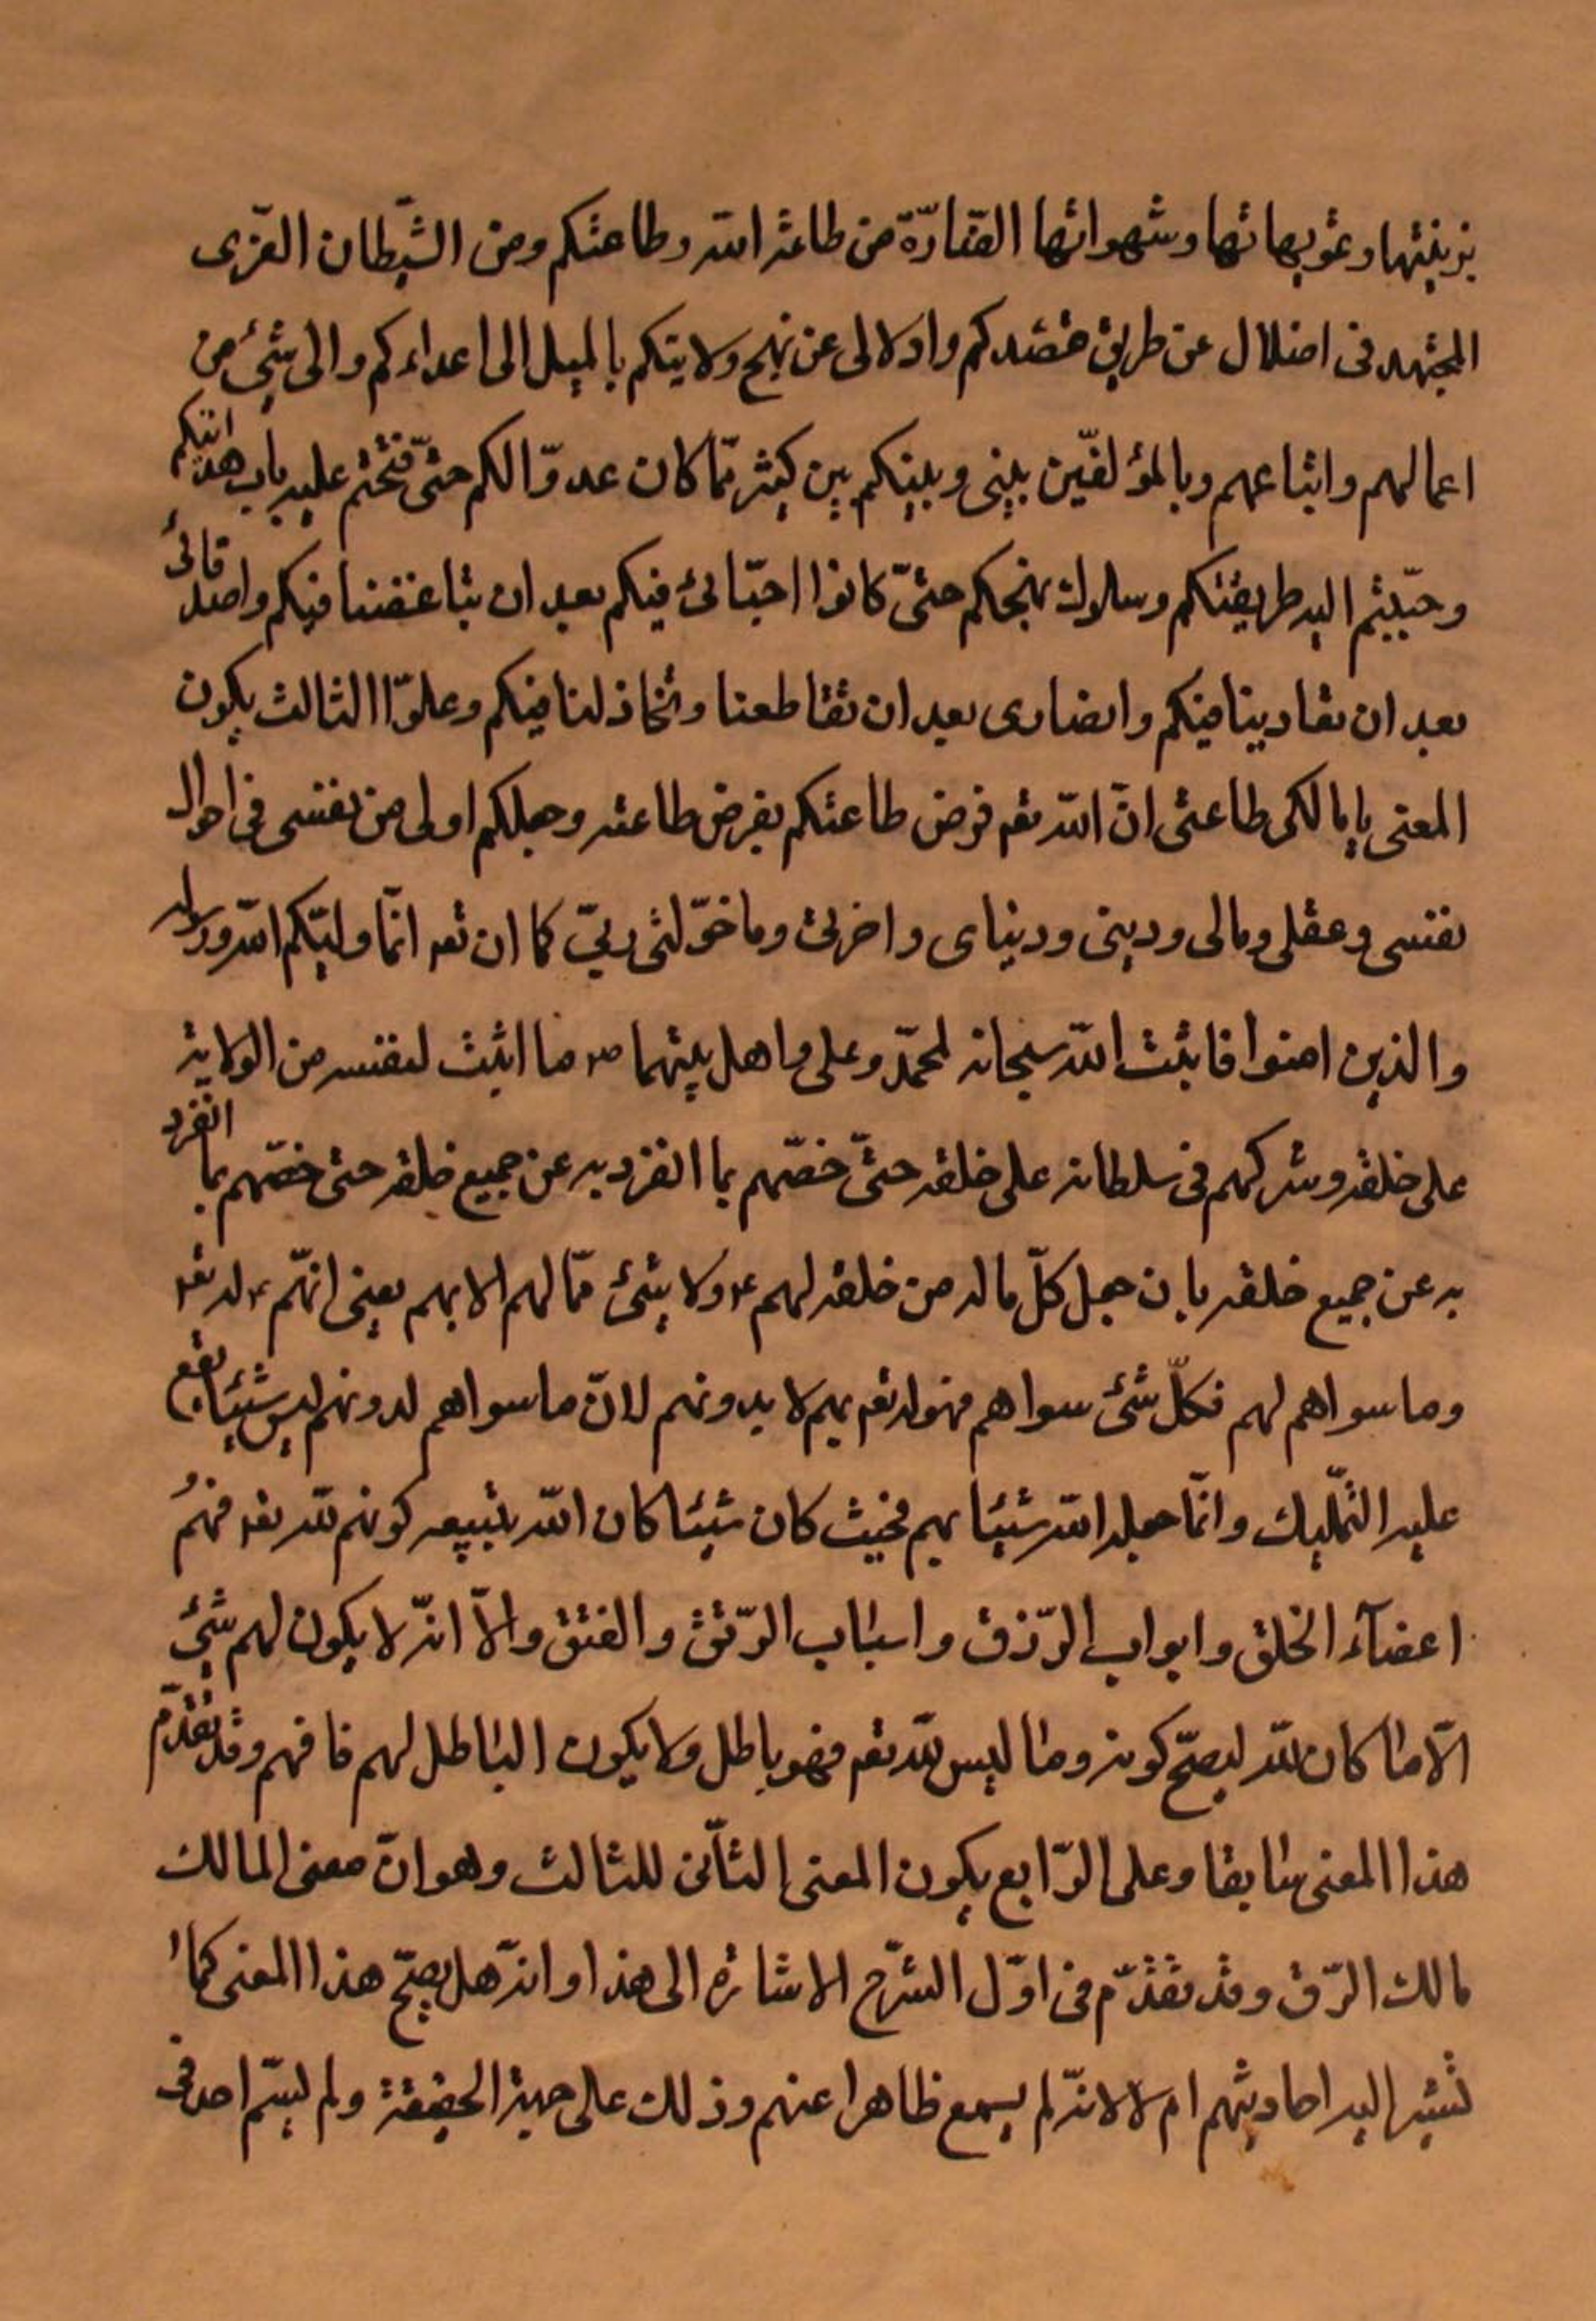 بزينتها وتمويهاتها وشهواتها الصّادّة عن طاعة الله وطاعتكم ومن الشّيطان المغوى
المجتهد فى اضلالى عن طريق قصدكم وادلالى عن نهج ولايتكم بالميل الى اعدائكم والى شئ من
اعمالهم واتباعهم وبالمؤلفين بينى وبينكم بين كثير ممّا كان عدوّا لكم حتّى فتحتم عليه باب هدايتكم
وحبّبتم اليه طريقتكم وسلوك نهجكم حتّى كانوا احبّائى فيكم بعد ان تباغضنا فيكم واصدقائى
بعد ان تعادينا فيكم وانصارى بعد ان تقاطعنا وتخاذلنا فيكم وعلى الثالث يكون
المعنى يا مالكى طاعتى انّ الله تعم فرض طاعتكم بفرض طاعته وجعلكم اولى من نفسى فى احوال
نفسى وعقلى ومالى ودينى ودنياى واخرتى وما خوّلنى ربّى كما ان تعه انّما وليّكم الله ورسوله
والذين امنوا فاثبت الله سبحانه لمحمّد وعلى واهل بيتهما صه ما اثبت لنفسه من الولاية
على خلقه وشركهم فى سلطانه على خلقه حتّى خصّهم بما انفرد به عن جميع خلقه حتى خصّهم بما انفرد
به عن جميع خلقه بان جعل كلّ ما له من خلقه لهم ع ولا شئ ممّا لهم الا بهم يعنى انهّم ع له تعه
وما سواهم لهم فكلّ شئ سواهم فهو له تعم بهم لا بدونهم لانّ ما سواهم له دونهم ليس شيئا يقع
عليه التّمليك وانّما جعله الله شيئا بهم فحيث كان شيئا كان الله بتبعيه كونهم لله تعه فهم
اعضآء الخلق وابواب الرّزق واسباب الرّتق والفتق والاّ انّه لا يكون لهم شئ
الاّ ما كان لله ليصحّ كونه وما ليس لله تعم فهو باطل ولا يكون الباطل لهم فافهم وقد تقدّم
هذا المعنى سابقا وعلى الرّابع يكون المعنى الثّانى للثالث وهو انّ معنى المالك
مالك الرّق وقد تقدّم فى اوّل الشرّح الاشارة الى هذا وانّه هل يصحّ هذا المعنى كما
تشير اليه احاديثهم ام لا لانّه لم يسمع ظاهرا عنهم وذلك على جهة الحقيقة ولم يسمّ احد فى